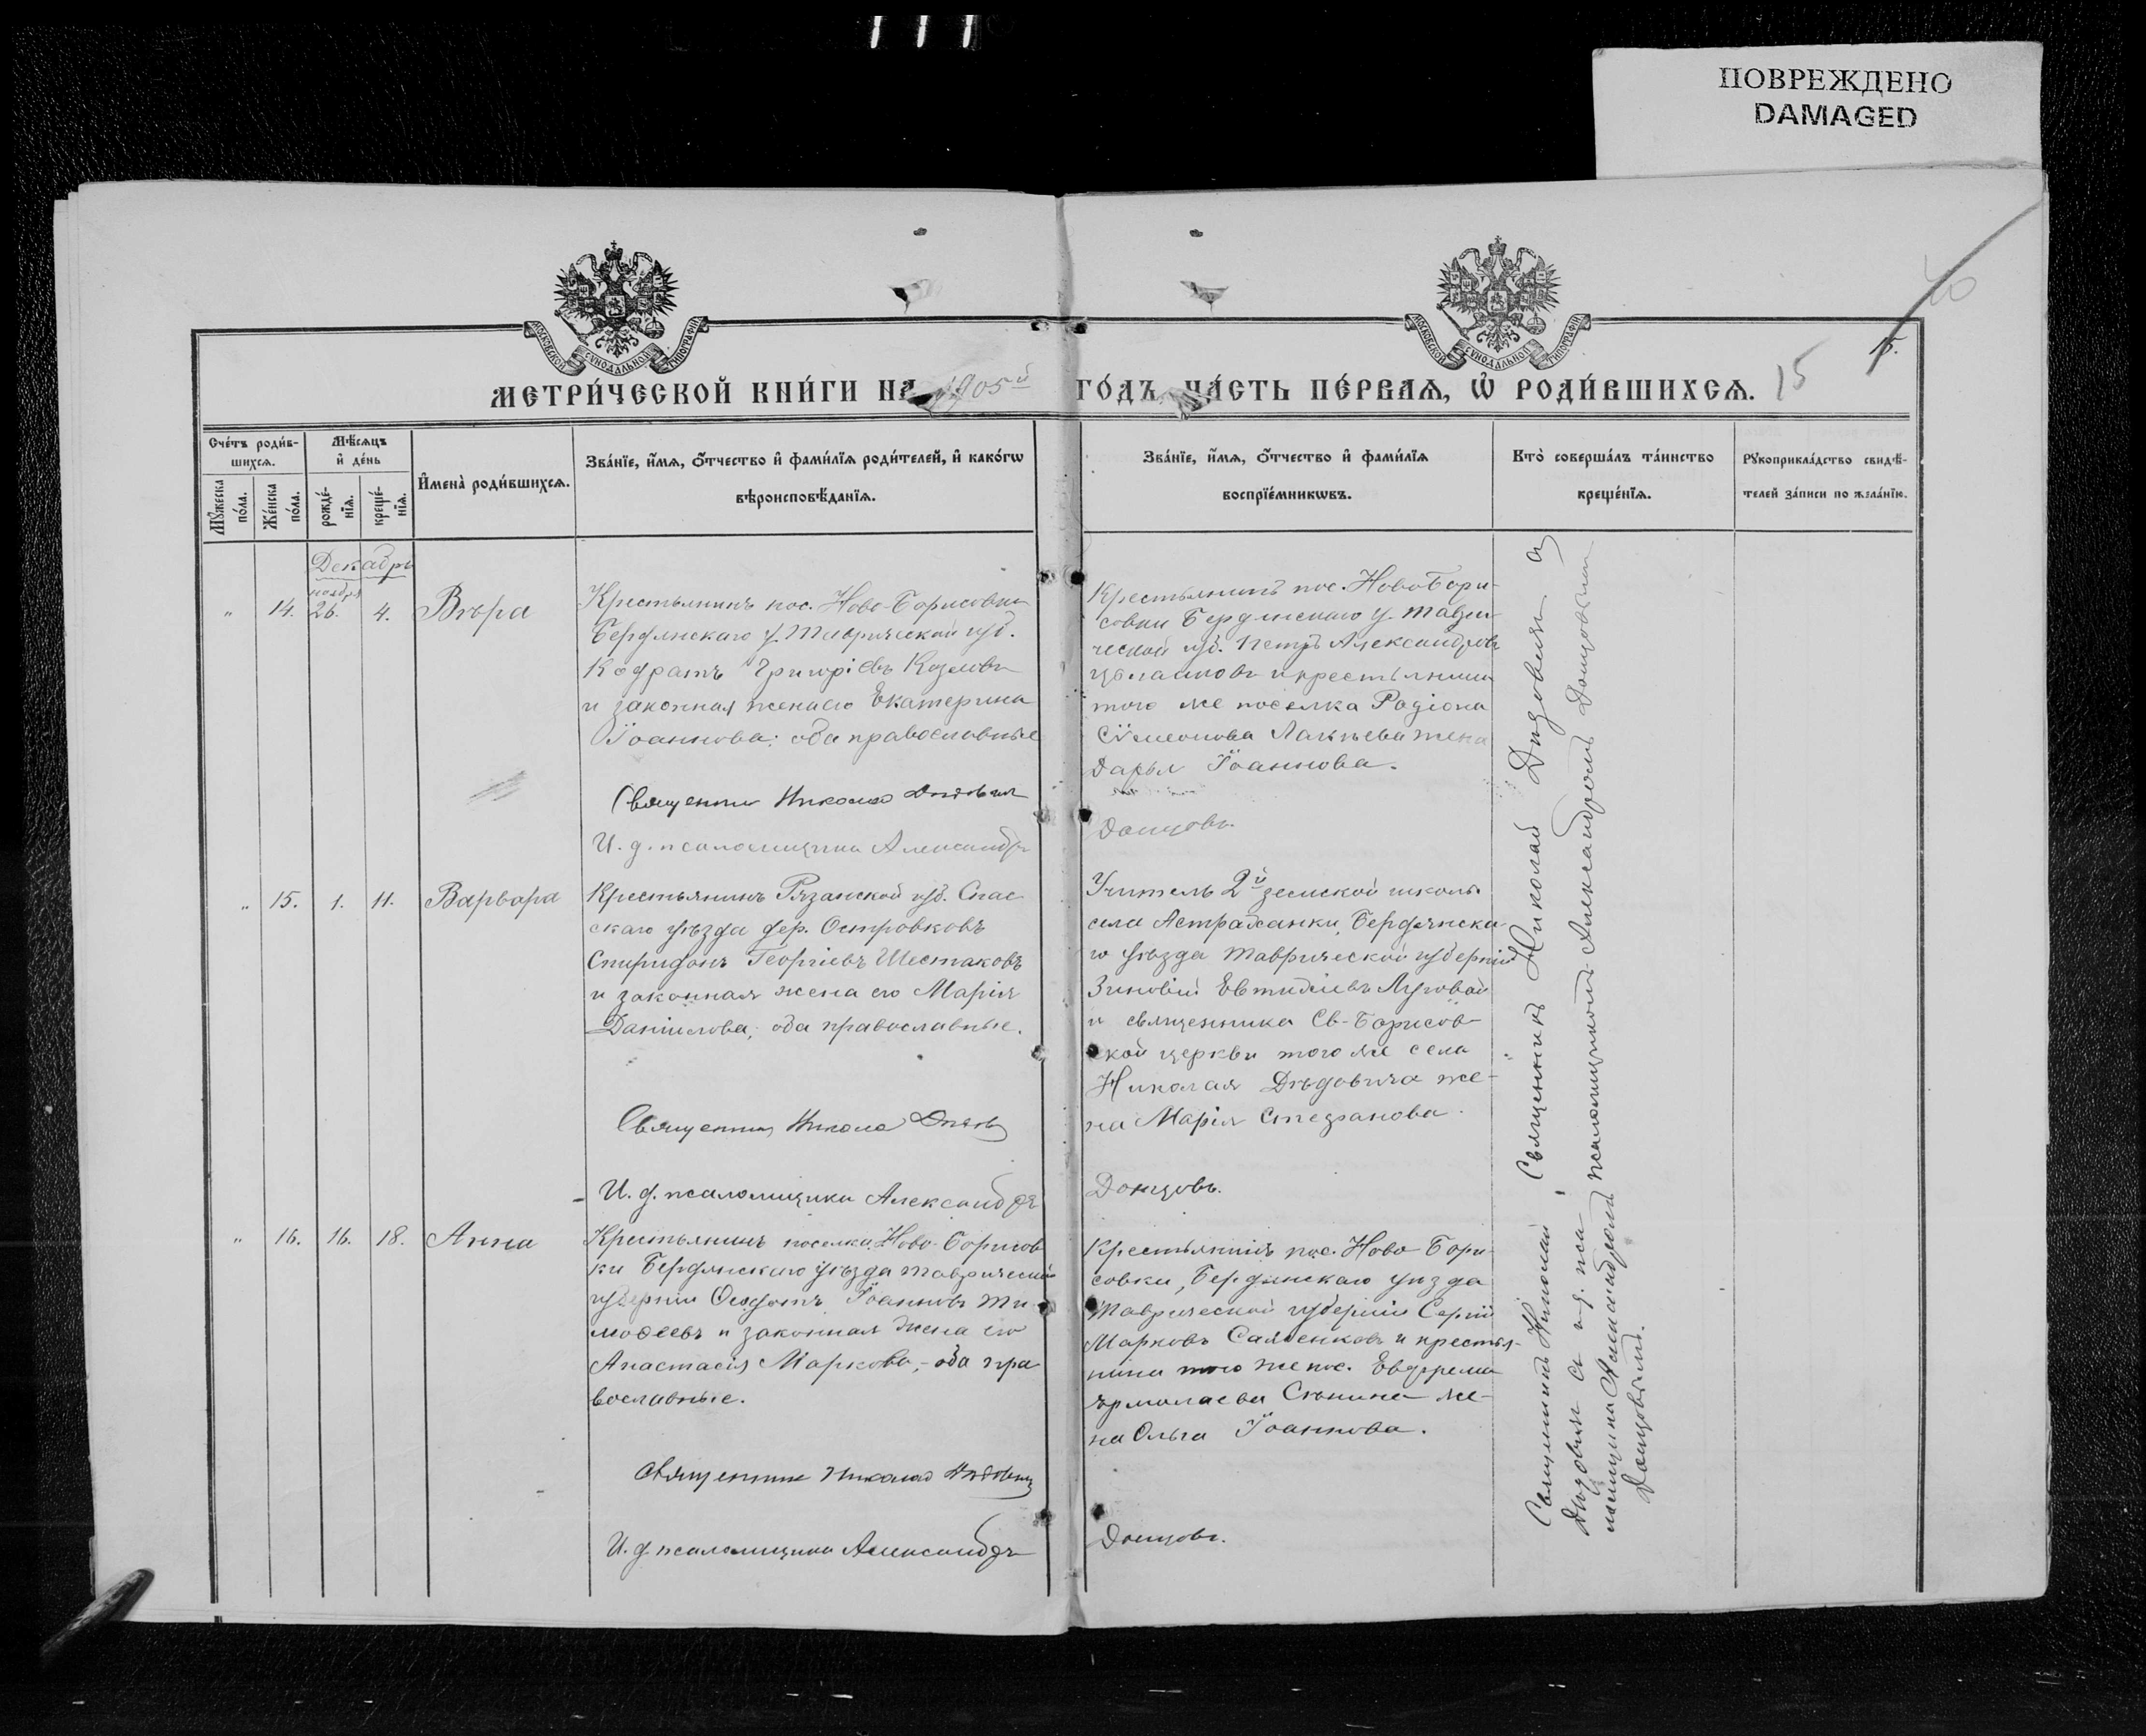 ПОВРЕЖДЕНО
DAMAGED
МОСКОВСКОЙ СѴНОДАЛЬНОЙ ТИПОГРАФІИ
МОСКОВСКОЙ СѴНОДАЛЬНОЙ ТИПОГРАФІИ
15.
МЕТРИ́ЧЕСКОЙ КНИ́ГИ НА 1905й ГО́ДЪ, ЧА́СТЬ ПЕ́РВАѦ, Ѿ РОДИ́ВШИХСѦ. 15
Сче́тъ роди́в-
шихсѧ.
Мꙋ́жеска по́ла.
Же́нска по́ла.
Мѣ́сѧцъ
и҆ де́нь
рожде́-
нїѧ.
креще́-
нїѧ.
И҆мена̀ роди́вшихсѧ.
Зва́нїе, и҆́мѧ, ѻ҆́тчество и҆ фами́лїѧ роди́телей, и҆ како́гѡ
вѣроисповѣ́данїѧ.
Зва́нїе, и҆́мѧ, ѻ҆́тчество и҆ фами́лїѧ
воспрїе́мникѡвъ.
Кто̀ соверша́лъ та́инство
креще́нїѧ.
Рꙋкоприкла́дство свидѣ́-
телей за́писи по жела́нїю.
Декабрь
ноября
" 14. 26. 4. Вѣра
Крестьянинъ пос. Ново-Борисовки
Бердянскаго у. Таврической губ.
Кодратъ Григоріевъ Козловъ
и законная жена его Екатерина
Іоаннова; оба православные
Священник Николай Дѣдович
И. д. псаломщика Александръ
Крестьянинъ пос. Ново Бори-
совки Бердянскаго у. Таври-
ческой губ. Петръ Александровъ
и крестьянина
того же поселка Родіона
Сѵмеонова жена
Дарья Іоаннова.
Донцовъ.
" 15. 1. 11. Варвара
Крестьянинъ Рязанской губ. Спас
скаго уѣзда дер. Островковъ
Спиридонъ Георгіевъ Шестаковъ
и законная жена его Марія
Даніилова; оба православные.
Священник Никола Дѣдов
И. д. псаломщика Александръ
Учитель 2й земской школы
села Астраханки, Бердянска-
го уѣзда Таврической губерніи
Зиновій Евтихіевъ Луговой
и священника Св-Борисов-
ской церкви того же села
Николая Дѣдовича же-
на Марія Стефанова.
Донцовъ.
" 16. 16. 18. Анна
Крестьянинъ поселка Ново-Борисов
ки Бердянскаго уѣзда Таврической
губерніи Ѳеодотъ Іоанновъ Ти-
моѳеевъ и законная жена его
Анастасія Маркова, - оба пра
вославные.
Священник Николай Дѣдович
И. д. псаломщика Александръ
Крестьянинъ пос. Ново Бори-
совки, Бердянскаго уѣзда
Таврической губерніи Сергій
Марковъ и крестья-
нина того же пос. Евфрема
Ермолаева Сѣнина же-
на Ольга Іоаннова.
Донцовъ.
Священникъ Николай Дѣдовичъ
псаломщикомъ Александромъ Донцовымъ
Священникъ Николай
Дѣдовичъ съ и. д. пса-
ломщика Александромъ
Донцовымъ.